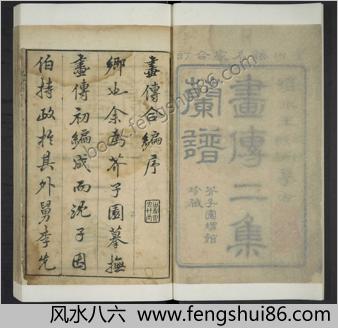 家合訂
畫傳二集
蘭譜
芥子園甥館
珍藏
畫傳合編序
鄉也余為芥子園摹撫
畫傳初編成而沈子因
伯持政於其外舅李先
book.fengshui86.com
风水八六
www.fengshui86.com